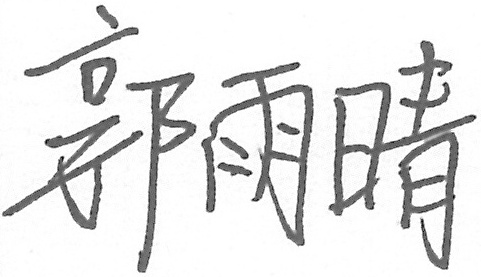 郭雨晴